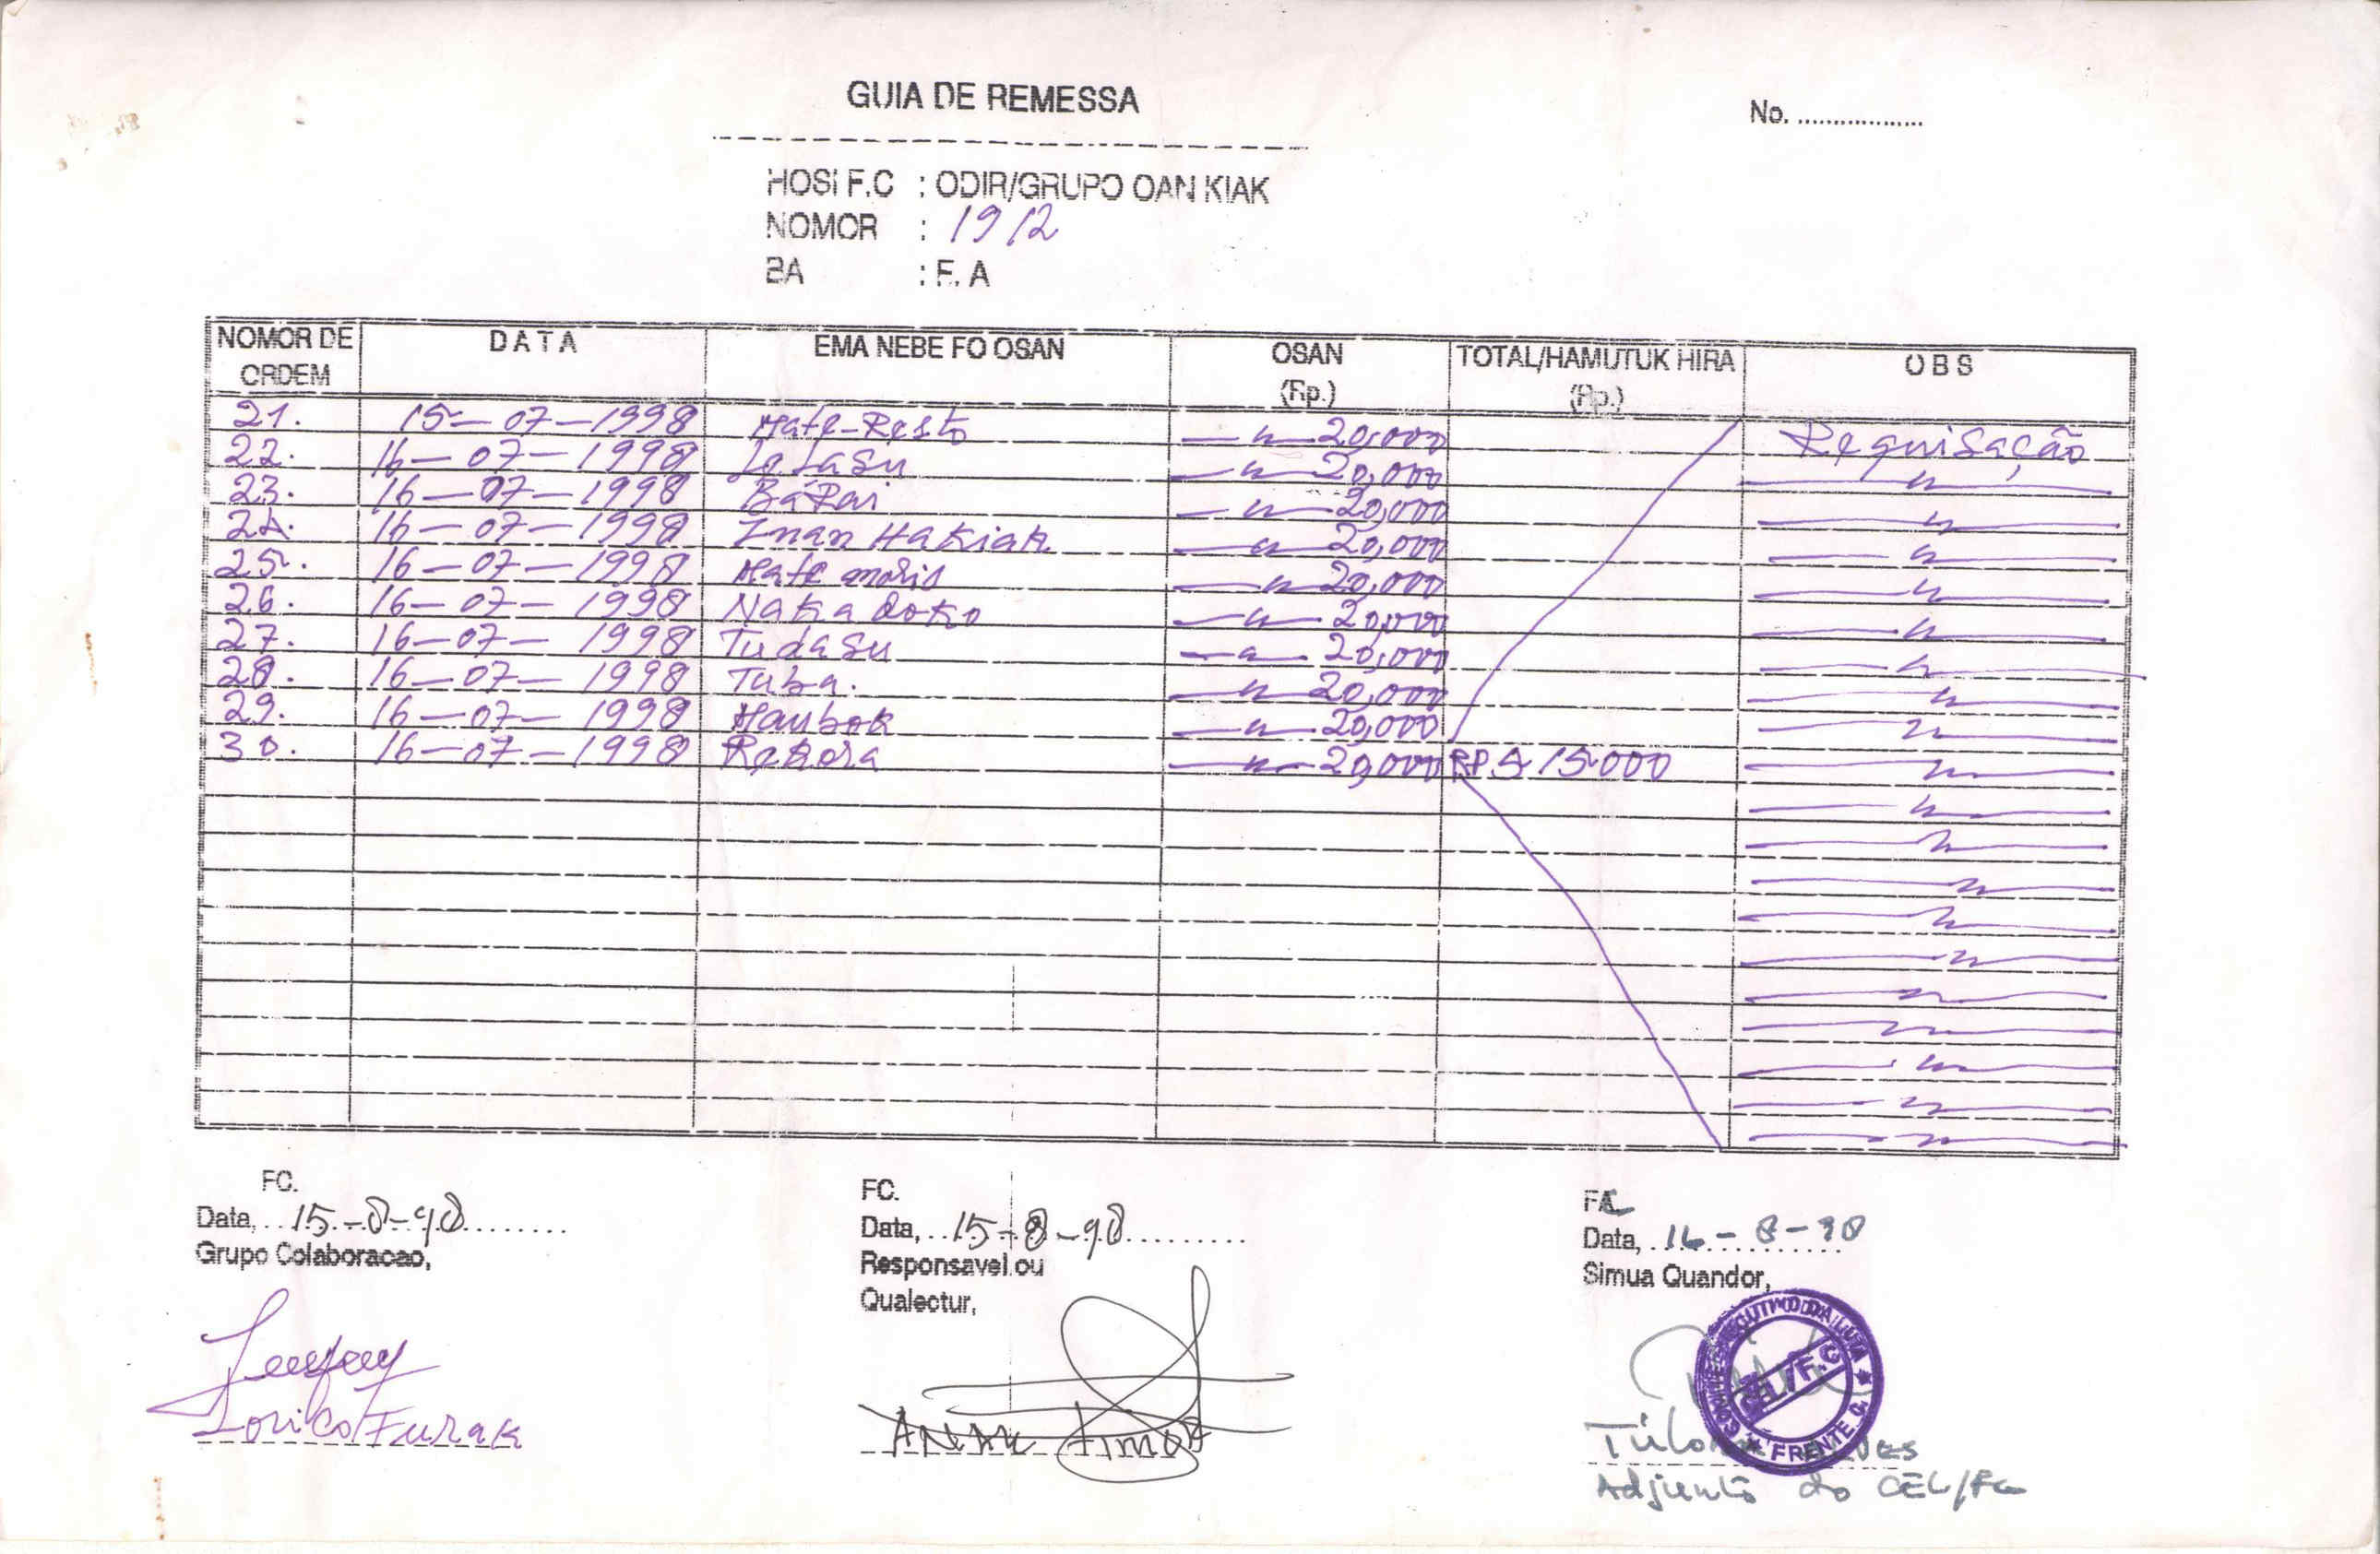 GUIA DE REMESSA
No. .................
HOSI F.C : ODIR/GRUPO OAN KIAK
NOMOR : 1912
BA : F. A
NOMOR DE ORDEM DATA EMA NEBE FO OSAN OSAN (Rp.) TOTAL/HAMUTUK HIRA (Rp.) OBS
21. 15-07-1998 Mate-Resto 20,000 Requisação
22. 16-07-1998 20,000
23. 16-07-1998 BaRai 20,000
24. 16-07-1998 Inan Hakiak 20,000
25. 16-07-1998 Mate moris 20,000
26. 16-07-1998 Naka doko 20,000
27. 16-07-1998 Tudasu 20,000
28. 16-07-1998 Tuba. 20,000
29. 16-07-1998 Haubok 20,000
30. 16-07-1998 Rekora 20,000 RP. 515.000
FC.
Data, 15-8-98
Grupo Colaboracao,
Lorico Furak
FC.
Data, 15-8-98
Responsavel ou
Qualectur,
Timor
Data, 16-8-98
Simua Quandor,
CEL/F.C
FRENTE C.
Adjunto do CEL/FC